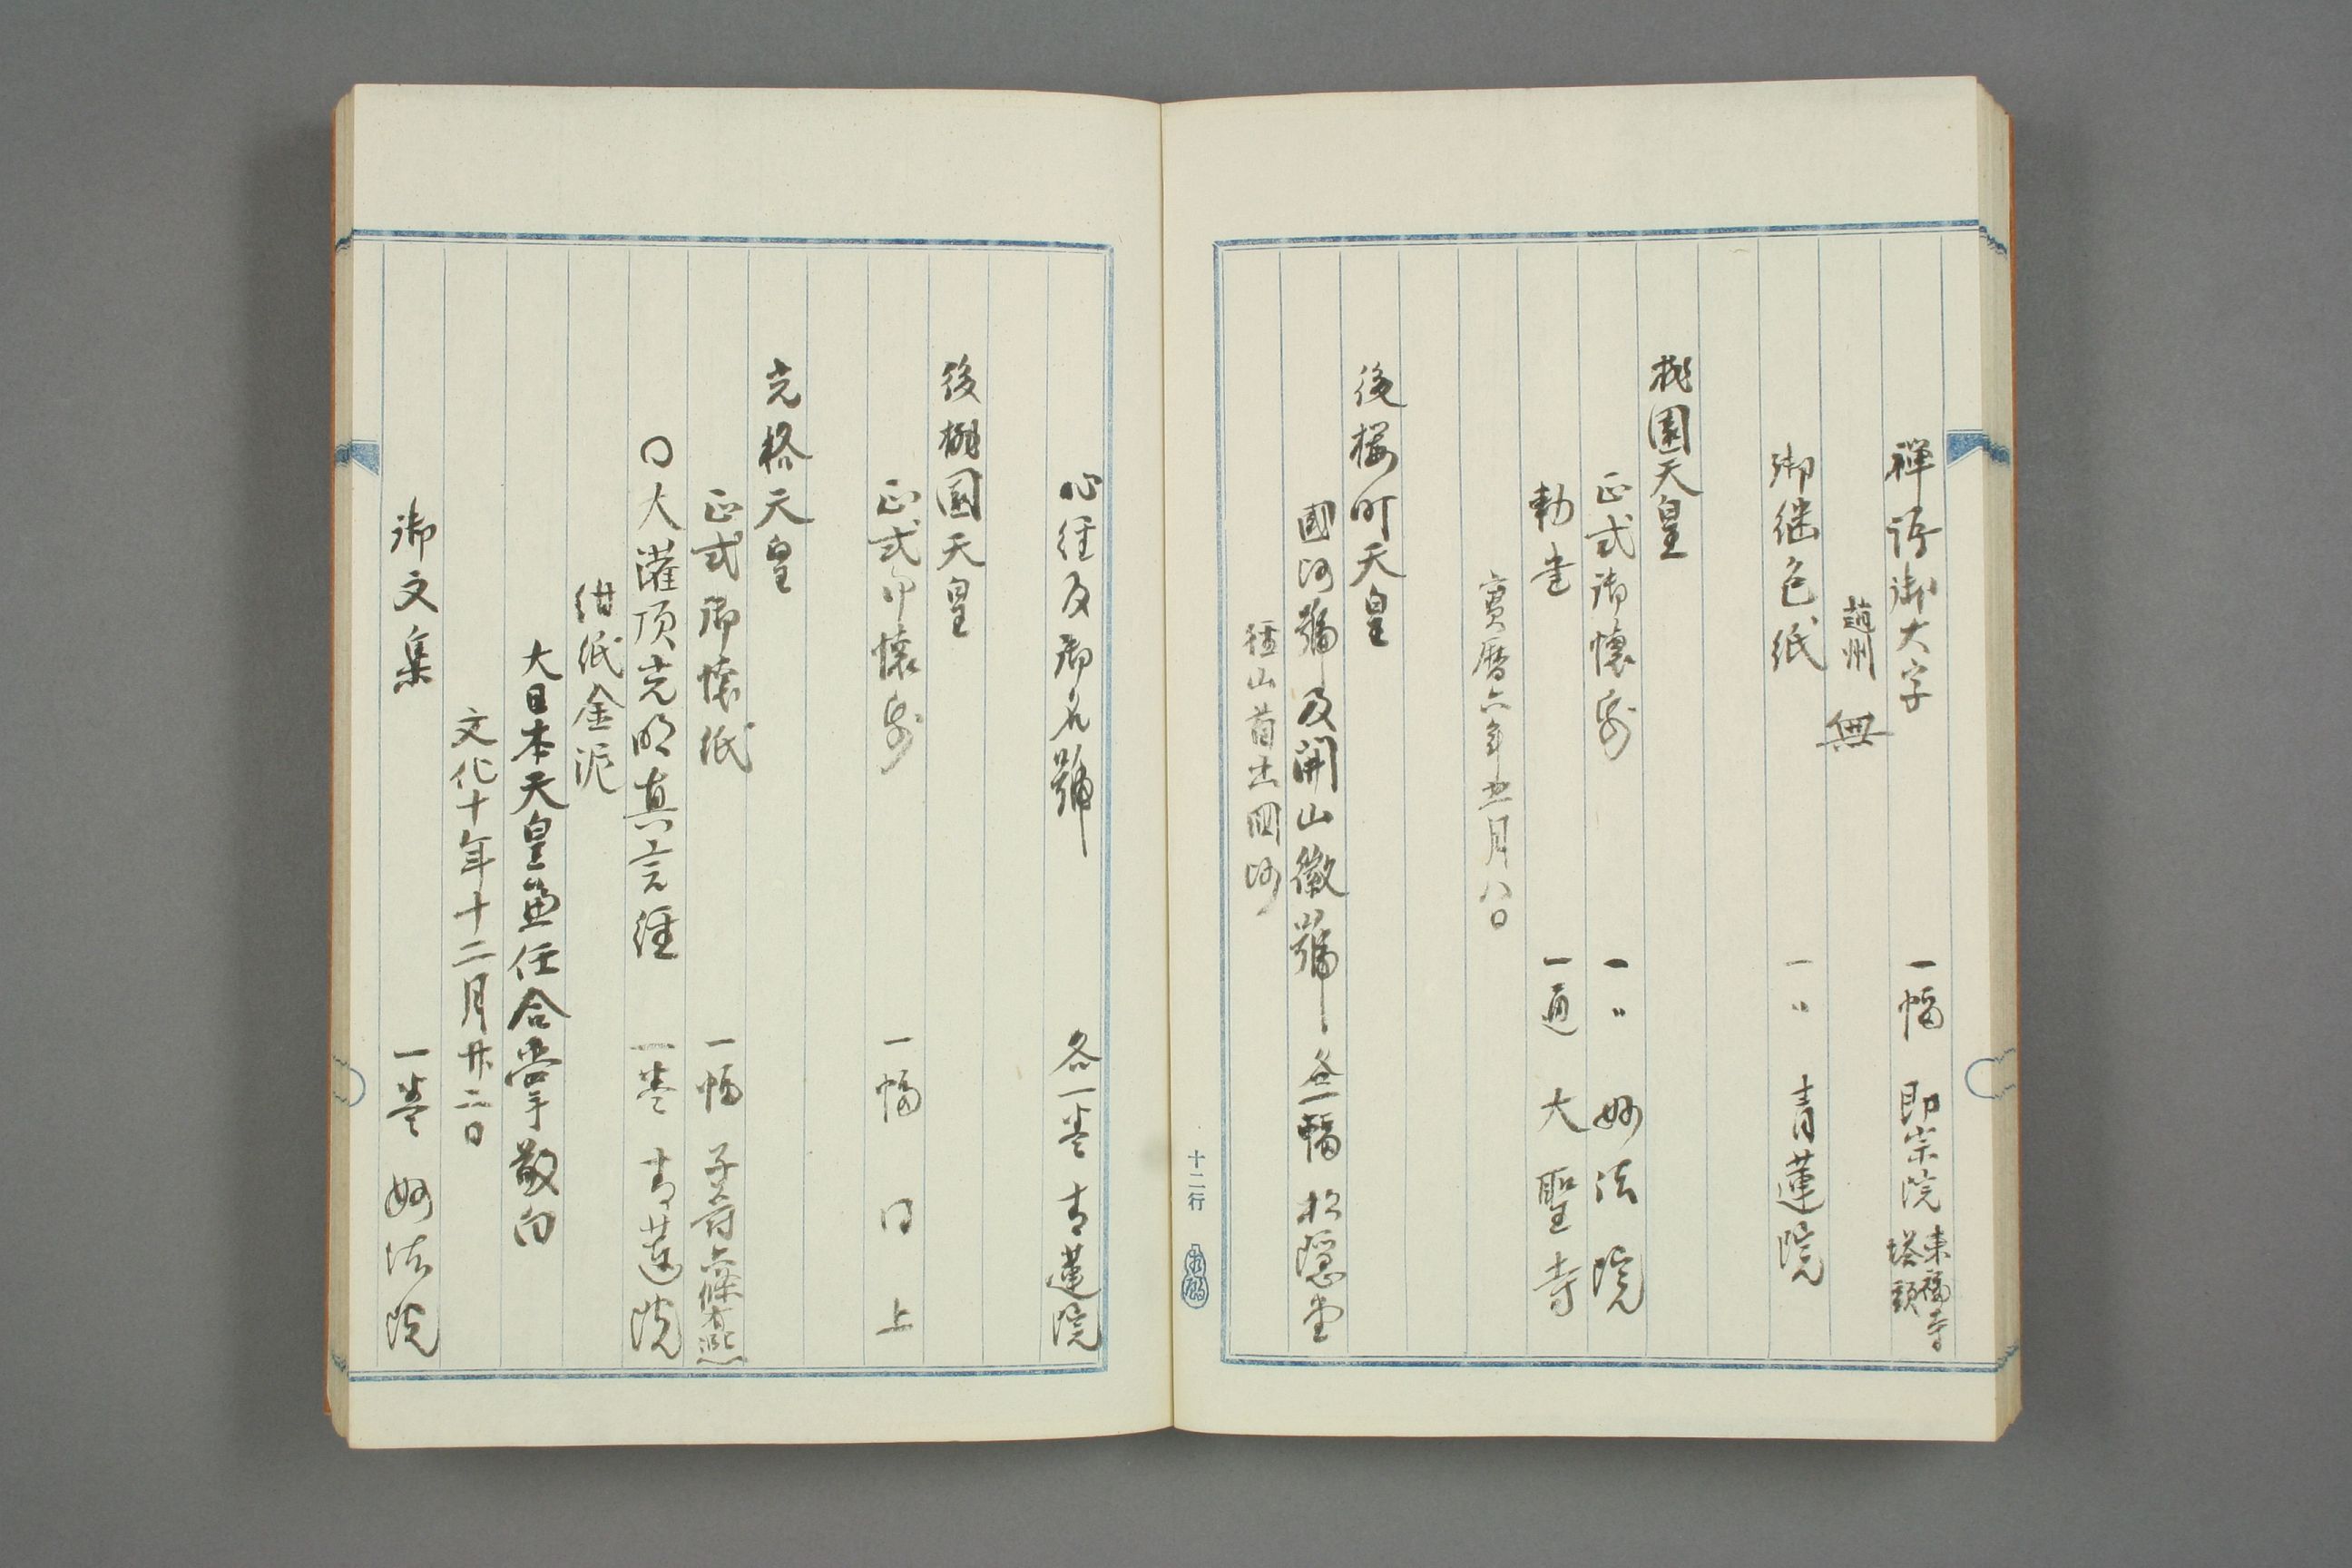 禅語御大字 一幅 即宗院 東福寺塔頭
趙州 無
御継色紙 一〃 青蓮院
桃園天皇
正式御懐紙 一〃 妙法院
勅書 一通 大聖寺
寳暦六年五月八日
後桜町天皇
國阿號及開山徽號 各一幅 松隠堂
山 國師
十二行
心経及御名號 各一巻 青蓮院
後桃園天皇
正式御懐紙 一幅 同上
光格天皇
正式御懐紙 一幅 子爵 六條有熈
同大灌頂光明真言経 一巻 青蓮院
紺紙金泥
大日本天皇兼仁合掌敬白
文化十年十二月廿二日
御文集 一巻 妙法院